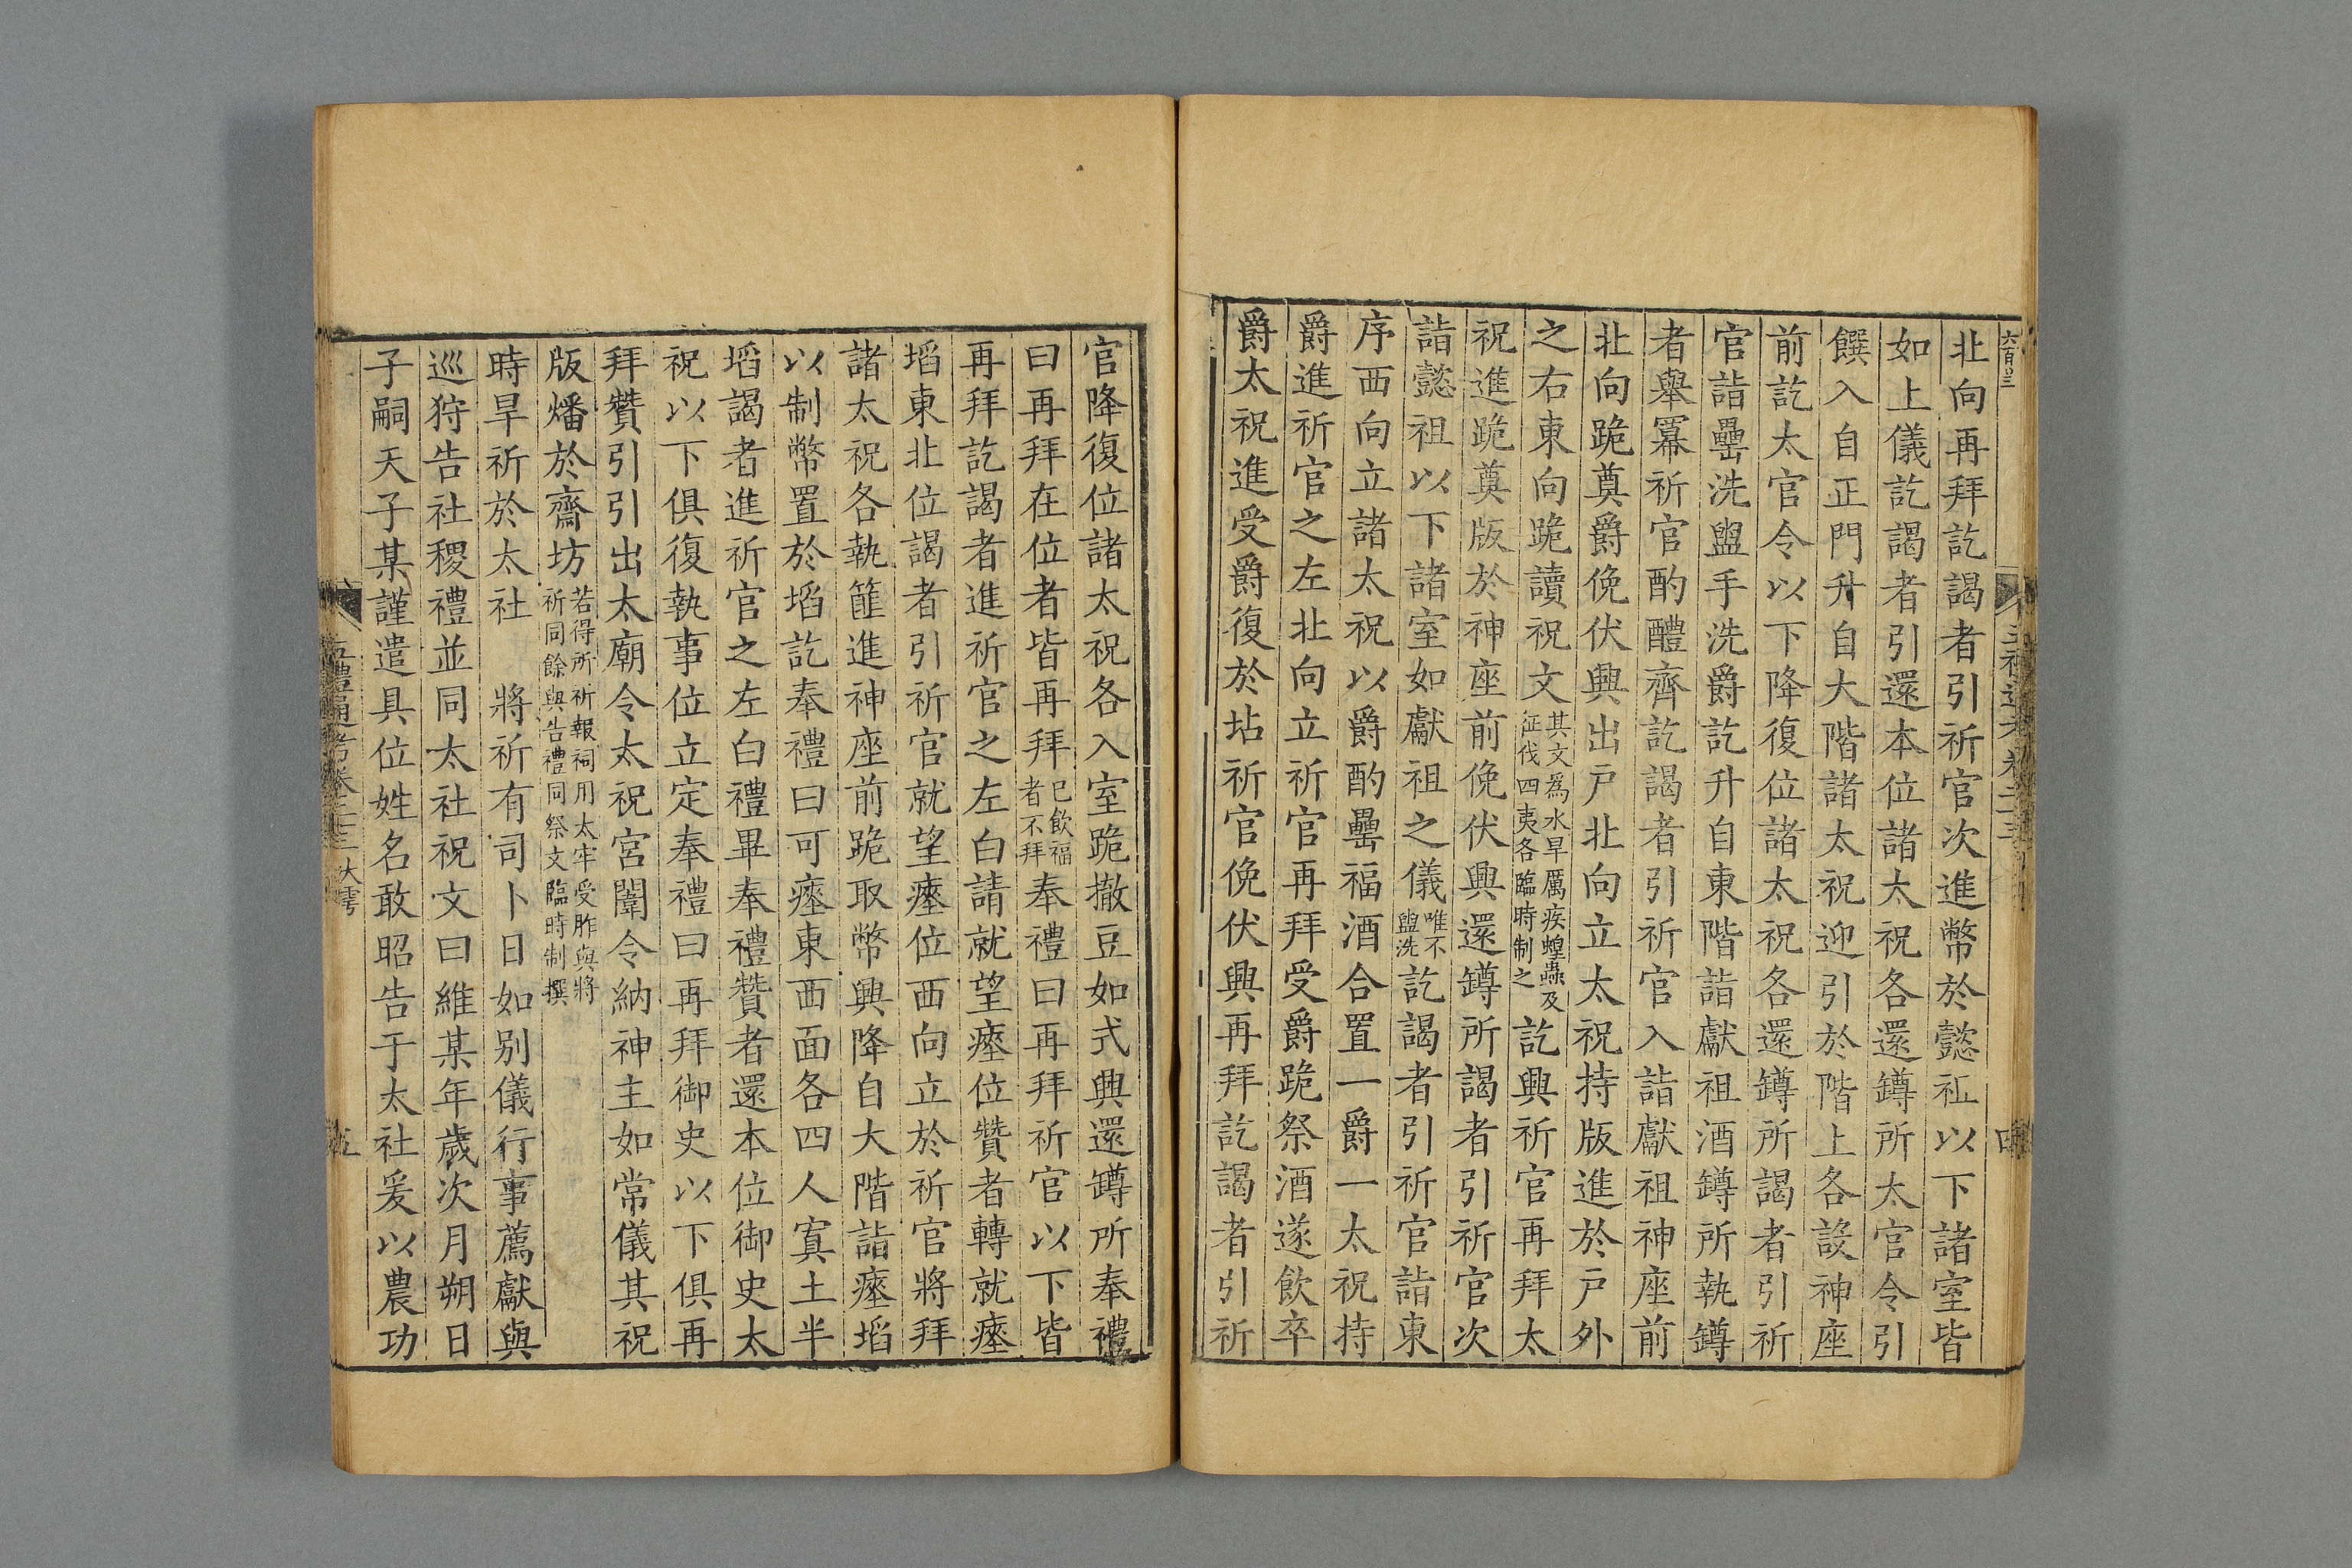 北向再拜訖謁者引祈官次進幣於懿祖以下諸室皆
如上儀訖謁者引還本位諸太祝各還罇所太官令引
饌入自正門升自大階諸太祝迎引於階上各設神座
前訖太官令以下降復位諸太祝各還罇所謁者引祈
官詣罍洗盥手洗爵訖升自東階詣獻祖酒罇所執罇
者舉冪祈官酌醴齊訖謁者引祈官入詣獻祖神座前
北向跪奠爵俛伏興出戶北向立太祝持版進於戶外
之右東向跪讀祝文其文為水旱厲疾蝗蟲及征伐四夷各臨時制之訖興祈官再拜太
祝進跪奠版於神座前俛伏興還罇所謁者引祈官次
詣懿祖以下諸室如獻祖之儀唯不盥洗訖謁者引祈官詣東
序西向立諸太祝以爵酌罍福酒合置一爵一太祝持
爵進祈官之左北向立祈官再拜受爵跪祭酒遂飲卒
爵太祝進受爵復於坫祈官俛伏興再拜訖謁者引祈
官降復位諸太祝各入室跪撤豆如式興還罇所奉禮
曰再拜在位者皆再拜已飲福者不拜奉禮曰再拜祈官以下皆
再拜訖謁者進祈官之左白請就望瘞位贊者轉就瘞
埳東北位謁者引祈官就望瘞位西向立於祈官將拜
諸太祝各執篚進神座前跪取幣興降自大階詣瘞埳
以制幣置於埳訖奉禮曰可瘞東西面各四人寘土半
埳謁者進祈官之左白禮畢奉禮贊者還本位御史太
祝以下俱復執事位立定奉禮曰再拜御史以下俱再
拜贊引引出太廟令太祝宮闈令納神主如常儀其祝
版燔於齋坊若得所祈報祠用太牢受胙與將祈同餘與告禮同祭文臨時制撰
時旱祈於太社　將祈有司卜日如別儀行事薦獻與
巡狩告社稷禮並同太社祝文曰維某年歲次月朔日
子嗣天子某謹遣具位姓名敢昭告于太社爰以農功
五禮通考卷二十三 大雩
五